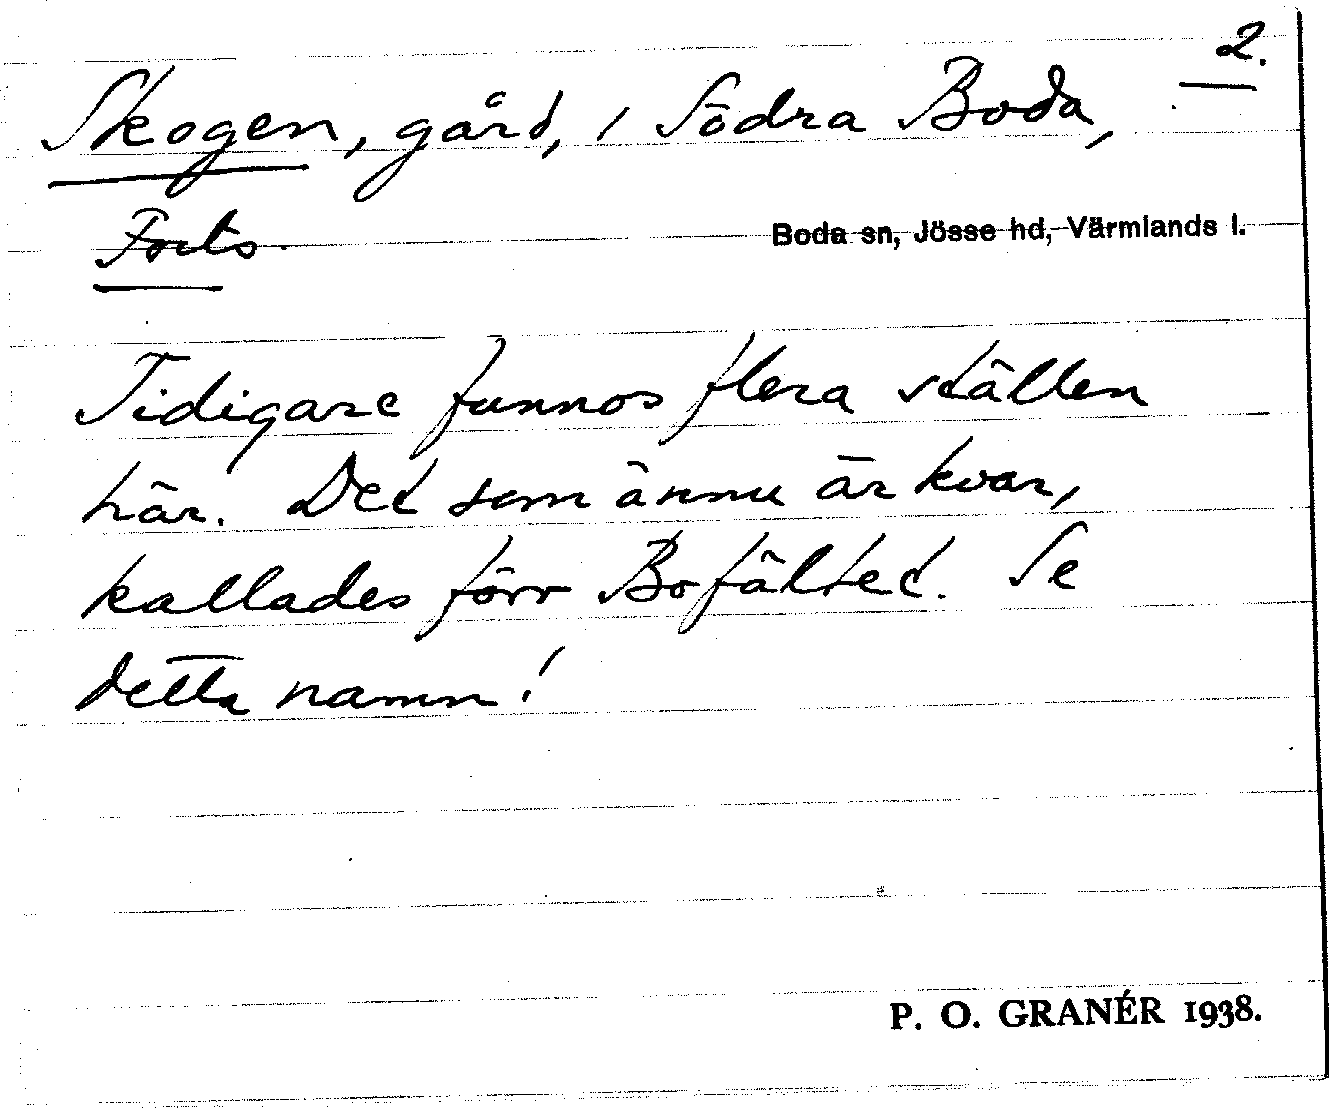 2.
Skogen, gård, i Södra Boda,
Forts.
Boda sn, Jösse hd, Värmlands l.
Tidigare funnos flera ställen
här. Det som ännu är kvar,
kallades förr Bofältet. Se
detta namn!
P. O. GRANÉR 1938.